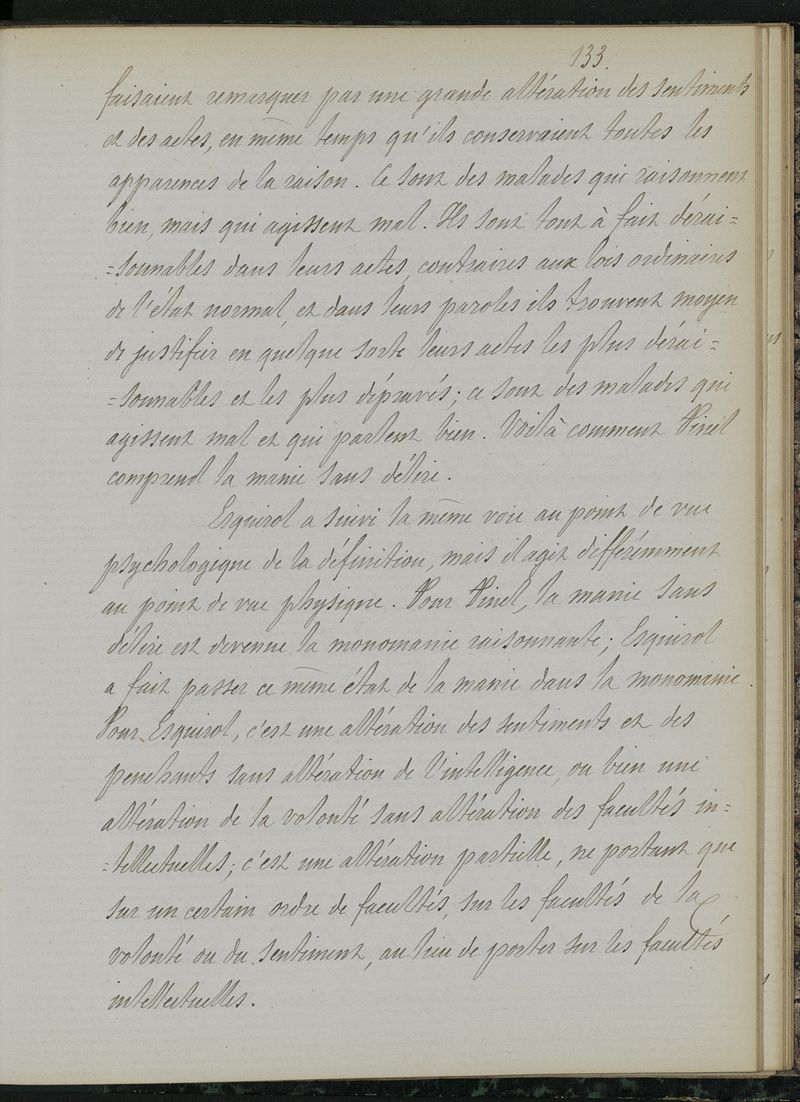 133.
faisaient remarquer par une grande altération des sentiments
et des actes, en même temps qu'ils conservaient toutes les
apparences de la raison. Ce sont des malades qui raisonnent
bien, mais qui agissent mal. Ils sont tout à fait dérai=
=sonnables dans leurs actes, contraires aux lois ordinaires
de l'état normal, et dans leurs paroles ils trouvent moyen
de justifier en quelque sorte leurs actes les plus dérai=
=sonnables et les plus dépravés; ce sont des malades qui
agissent mal et qui parlent bien. Voilà comment Pinel
comprend la manie sans délire.
Esquirol a suivi la même voie au point de vue
psychologique de la définition, mais il agit différemment
au point de vue physique. Pour Pinel, la manie sans
délire est devenue la monomanie raisonnante; Esquirol
a fait passer ce même état de la manie dans la monomanie.
Pour Esquirol, c'est une altération des sentiments et des
penchants sans altération de l'intelligence, ou bien une
altération de la volonté sans altération des facultés in=
=tellectuelles; c'est une altération partielle, ne portant que
sur un certain ordre de facultés, sur les facultés de la
volonté ou du sentiment, au lieu de porter sur les facultés
intellectuelles.